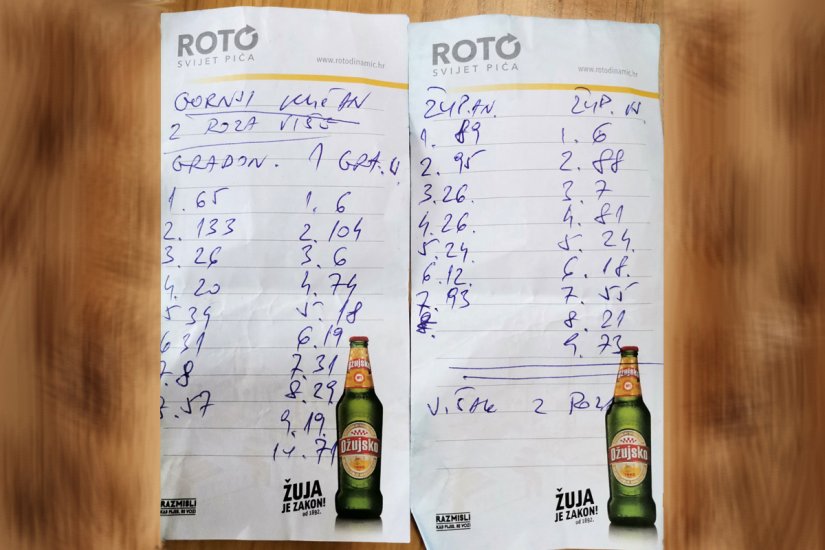 ROTO
SVIJET PIĆA
www.rotodinamic.hr
GORNJI
2 ROZA VIŠE
GRADON. 1 GRA.V.
1. 65
2. 133
3. 26
4. 20
5 34
6 31
7. 8
7. 57
1. 6
2. 104
3. 6
4. 74
5. 18
6. 19
7. 31
8. 29
9. 19.
14. 71
ŽUJA
JE ZAKON!
od 1892.
Ožujsko
Ožujsko
RAZMISLI
KAD PIJEŠ, NE VOZI
ROTO
SVIJET PIĆA
www.rotodinamic.hr
ŽUPAN.
1. 89
2. 95
3. 26.
4. 26.
5. 24.
6. 12.
7. 93
ŽUP. V.
1. 6
2. 88
3. 7
4. 81
5. 24.
6. 18.
7. 55
8. 21
9. 73
VIŠAK 2 ROZA
ŽUJA
JE ZAKON!
od 1892.
Ožujsko
Ožujsko
RAZMISLI
KAD PIJEŠ, NE VOZI